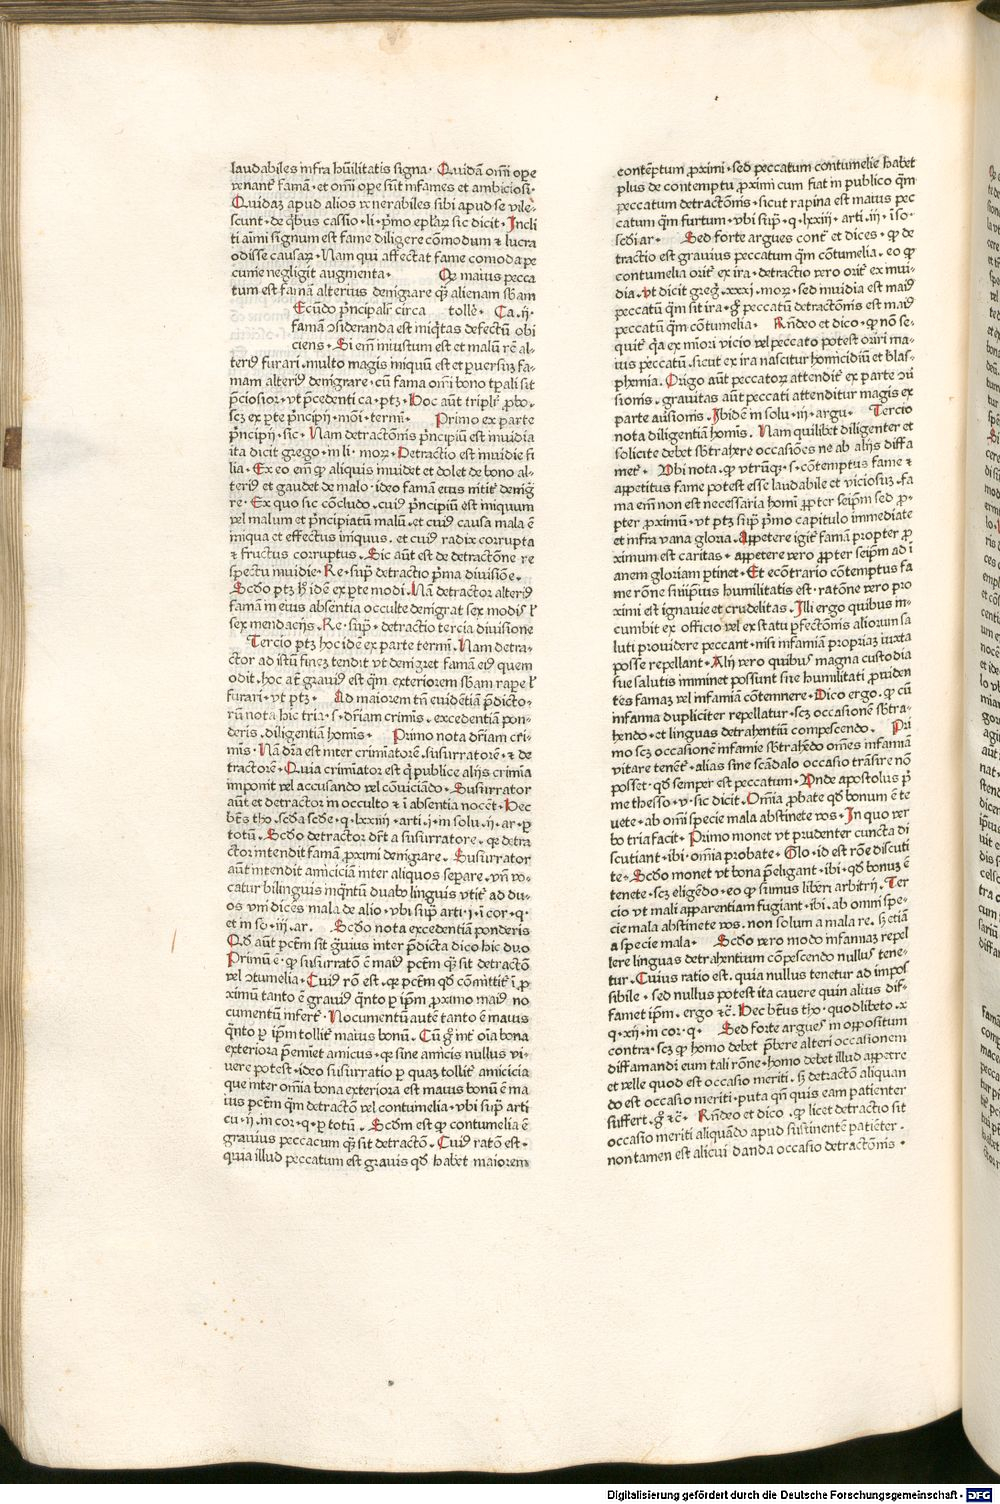 laudabiles infra hūilitatis signa. Quidā om̄i ope
venant᷑ famā. et om̄i ope sūt infames et ambiciosi.
Quidaꝫ apud alios venerabiles sibi apud se vile
scunt. de qͥbus cassio. li. pͥmo ep̄laꝝ sic dicit. Incli
ti aīmi signum est fame diligere cōmodum ⁊ lucra
odisse causaꝝ. Nam qui affectat fame comoda pe
cunie negligit augmenta. Qꝫ maius pecca
tum est famā alterius denigrare qͣꝫ alienam sb̄am
Ecūdo pͥncipalr̄ circa tolle. Ca. ij.
famā ↄsideranda est iniqͥtas defectū obi
ciens. Si em̄ iniustum est et malū rē al-
teriꝰ furari. multo magis iniquū est et ꝑuersuꝫ fa-
mam alteriꝰ denigrare. cū fama om̄i bono tꝑali sit
p̄ciosior. vt p̄cedenti ca. ptꝫ. Hoc aūt triplr̄ ꝓbo.
scꝫ ex ꝑte pͥncipij. moī. termī. Primo ex parte
pͥncipij. sic. Nam detractōnis pͥncipiū est inuidia
ita dicit grego. in li. moꝝ. Detractio est inuidie fi
lia. Ex eo em̄ ꝙ aliquis inuidet et dolet de bono al-
teriꝰ et gaudet de malo. ideo famā eius nitit᷑ denig̈
re. Ex quo sic cōcludo. cuiꝰ pͥncipiū est iniquum
vel malum et pͥncipiatū malū. et cuiꝰ causa mala ē
iniqua et effectus iniquus. et cuiꝰ radix corrupta
⁊ fructus corruptus. Sic aūt est de detractōne re
spectu inuidie. Re. supͣ detractio pͥma diuisiōe.
Scd̄o ptꝫ h̄ idē ex ꝑte modi. Nā detractor alteriꝰ
famā in eius absentia occulte denigrat sex modis ꝉ
sex mendacijs. Re. supͣ. detractio tercia diuisione
Tercio ptꝫ hoc idē ex parte termī. Nam detra-
ctor ad istū fineꝫ tendit vt denigret famā eiꝰ quem
odit. hoc at̄ grauiꝰ est qͣm exteriorem sb̄am rape ꝉ
furari. vt ptꝫ. Ad maiorem tn̄ euidētiā p̄dicto-
rū nota hic tria. s. dr̄iam crimīs. excedentiā pon-
deris. diligentiā homis. Primo nota dr̄iam cri-
mīs. Nā dr̄a est inter crimīatorē. susurratorē. ⁊ de
tractorē. Quia crimīator est qͥ publice alijs crimīa
imponit vel accusando vel cōuiciādo. Susurrator
aūt et detractor in occulto ⁊ ī absentia nocēt. Hec
bt̄s tho. scd̄a scd̄e. q. lxxiiij. arti. i. in solu. ij. ar. ꝑ
totū. Scd̄o detractor dr̄t a susurratore. qꝛ detra
ctor intendit famā ꝓximi denigrare. Susurrator
aūt intendit amiciciā inter aliquos separe. vn̄ vo-
catur bilinguis inqͣntū duabꝰ linguis vtit᷑ ad du-
os vni dices mala de alio. vbi supͣ arti. i. ī cor. q.
et in so. iij. ar. Scd̄o nota excedentiā ponderis
Qd̄ aūt pctm̄ sit gͣuius inter p̄dicta dico hic duo
Primū ē. ꝙ susurratō ē maiꝰ pctm̄ qͣꝫ sit detractō
vel ↄtumelia. Cuiꝰ rō est. qꝛ pctm̄ qd̄ cōmittit᷑ ī ꝓ
ximū tanto ē grauiꝰ qͣnto ꝑ ip̄m ꝓximo maiꝰ no
cumentū infert᷑. Nocumentū autē tanto ē maius
qͣnto ꝑ ip̄m tollit᷑ maius bonū. Cū gͦ int᷑ oīa bona
exteriora p̄emīet amicus. qꝛ sine amicis nullus vi-
uere potest. ideo susurratio ꝑ quaꝫ tollit᷑ amicicia
que inter om̄ia bona exteriora est maius bonū ē ma
ius pctm̄ qͣm detractō vel contumelia. vbi supͣ arti
cu. ij. in cor. q. ꝑ totū. Scd̄m est ꝙ contumelia ē
grauius peccatum qͣꝫ sit detractō. Cuiꝰ ratō est.
quia illud peccatum est grauis qd̄ habet maiorem
contēptum ꝓximi. sed peccatum contumelie habet
plus de contemptu ꝓximi cum fiat in publico qͣm
peccatum detractōnis. sicut rapina est maius pec
catum qͣm furtum. vbi supͣ. q. lxxiij. arti. iij. ī so.
scd̄i ar. Sed forte argues cont᷑ et dices. ꝙ de
tractio est grauius peccatum qͣm cōtumelia. eo ꝙ
contumelia orit᷑ ex ira. detractio vero orit᷑ ex inui-
dia. vt dicit greg̊. xxxi. moꝝ. sed inuidia est maiꝰ
peccatū qͣm sit ira. gͦ peccatū detractōnis est maiꝰ
peccatū qͣm cōtumelia. Rn̄deo et dico. ꝙ nō se-
quit᷑ qͥa ex mīori vicio vel peccato potest oriri ma-
ius peccatū. sicut ex ira nascitur homicidiū et blas-
phemia. Origo aūt peccatoꝝ attendit᷑ ex parte ↄū
sionis. grauitas aūt peccati attenditur magis ex
parte auisionis. Ibidē in solu. iij. argu. Tercio
nota diligentiā homīs. Nam quilibet diligenter et
solicite debet sb̄trahere occasiōes ne ab alijs diffa
met᷑. Vbi nota. ꝙ vtrūqꝫ. s. cōtemptus fame ⁊
appetitus fame potest esse laudabile et viciosuꝫ. fa
ma em̄ non est necessaria homī ꝓpter seip̄m sed ꝓ-
pter ꝓximū. vt ptꝫ supͣ pͥmo capitulo immediate
et infra vana gloria. Appetere igit᷑ famā propter ꝓ
ximum est caritas. appetere vero ꝓpter seip̄m ad ī
anem gloriam ꝑtinet. Et ecōtrario cōtemptus fa
me rōne suiip̄ius humilitatis est. ratōne vero pro
ximi est ignauie et crudelitas. Illi ergo quibus in-
cumbit ex officio vel ex statu ꝑfectōnis aliorum sa
luti prouidere peccant. nisi infamiā propriaꝫ iuxta
posse repellant. Alij vero quibus magna custodia
sue salutis imminet possunt sue humilitati ꝓuiden
tes famaꝫ vel infamiā cōtemnere. Dico ergo. ꝙ cū
infamia dupliciter repellatur. scꝫ occasionē sb̄tra-
hendo. et linguas detrahentiū compescendo. Pri
mo scꝫ occasionē infamie sb̄trahēdo om̄es infamiā
vitare tenent᷑. alias sine scādalo occasio trāsire nō
posset. qd̄ semper est peccatum. Vnde apostolus pͥ
me thesso. v. sic dicit. Om̄ia ꝓbate qd̄ bonum ē te
uete. ab om̄i specie mala abstinete vos. In quo ver
bo tria facit. Primo monet vt prudenter cuncta di
scutiant. ibi. om̄ia probate. Glo. id est rōe discuti
te. Scd̄o monet vt bona p̄eligant. ibi. qd̄ bonuꝫ ē
tenete. scꝫ eligēdo. eo ꝙ sumus liberi arbitrij. Ter
cio vt mali apparentiam fugiant. ibi. ab omni spe-
cie mala abstinete vos. non solum a mala re. sꝫ etiā
a specie mala. Scd̄o vero modo infamiaꝫ repel
lere linguas detrahentium cōpescendo nullus tene-
tur. Cuius ratio est. quia nullus tenetur ad impos
sibile. sed nullus potest ita cauere quin alius dif-
famet ip̄m. ergo ⁊c̄. Hec bt̄us tho. quodlibeto. x
q. xij. in cor. q. Sed forte argues in oppositum
contra. scꝫ ꝙ homo debet p̄bere alteri occasionem
diffamandi eum tali rōne. homo debet illud appetere
et velle quod est occasio meriti. sꝫ detractō aliquan
do est occasio meriti. puta qn̄ quis eam patienter
suffert. gͦ ⁊c̄. Rn̄deo et dico. ꝙ licet detractio sit
occasio meriti aliquādo apud sustinentē patiēter.
non tamen est alicui danda occasio detractōnis.
Digitalisierung gefördert durch die Deutsche Forschungsgemeinschaft - DFG